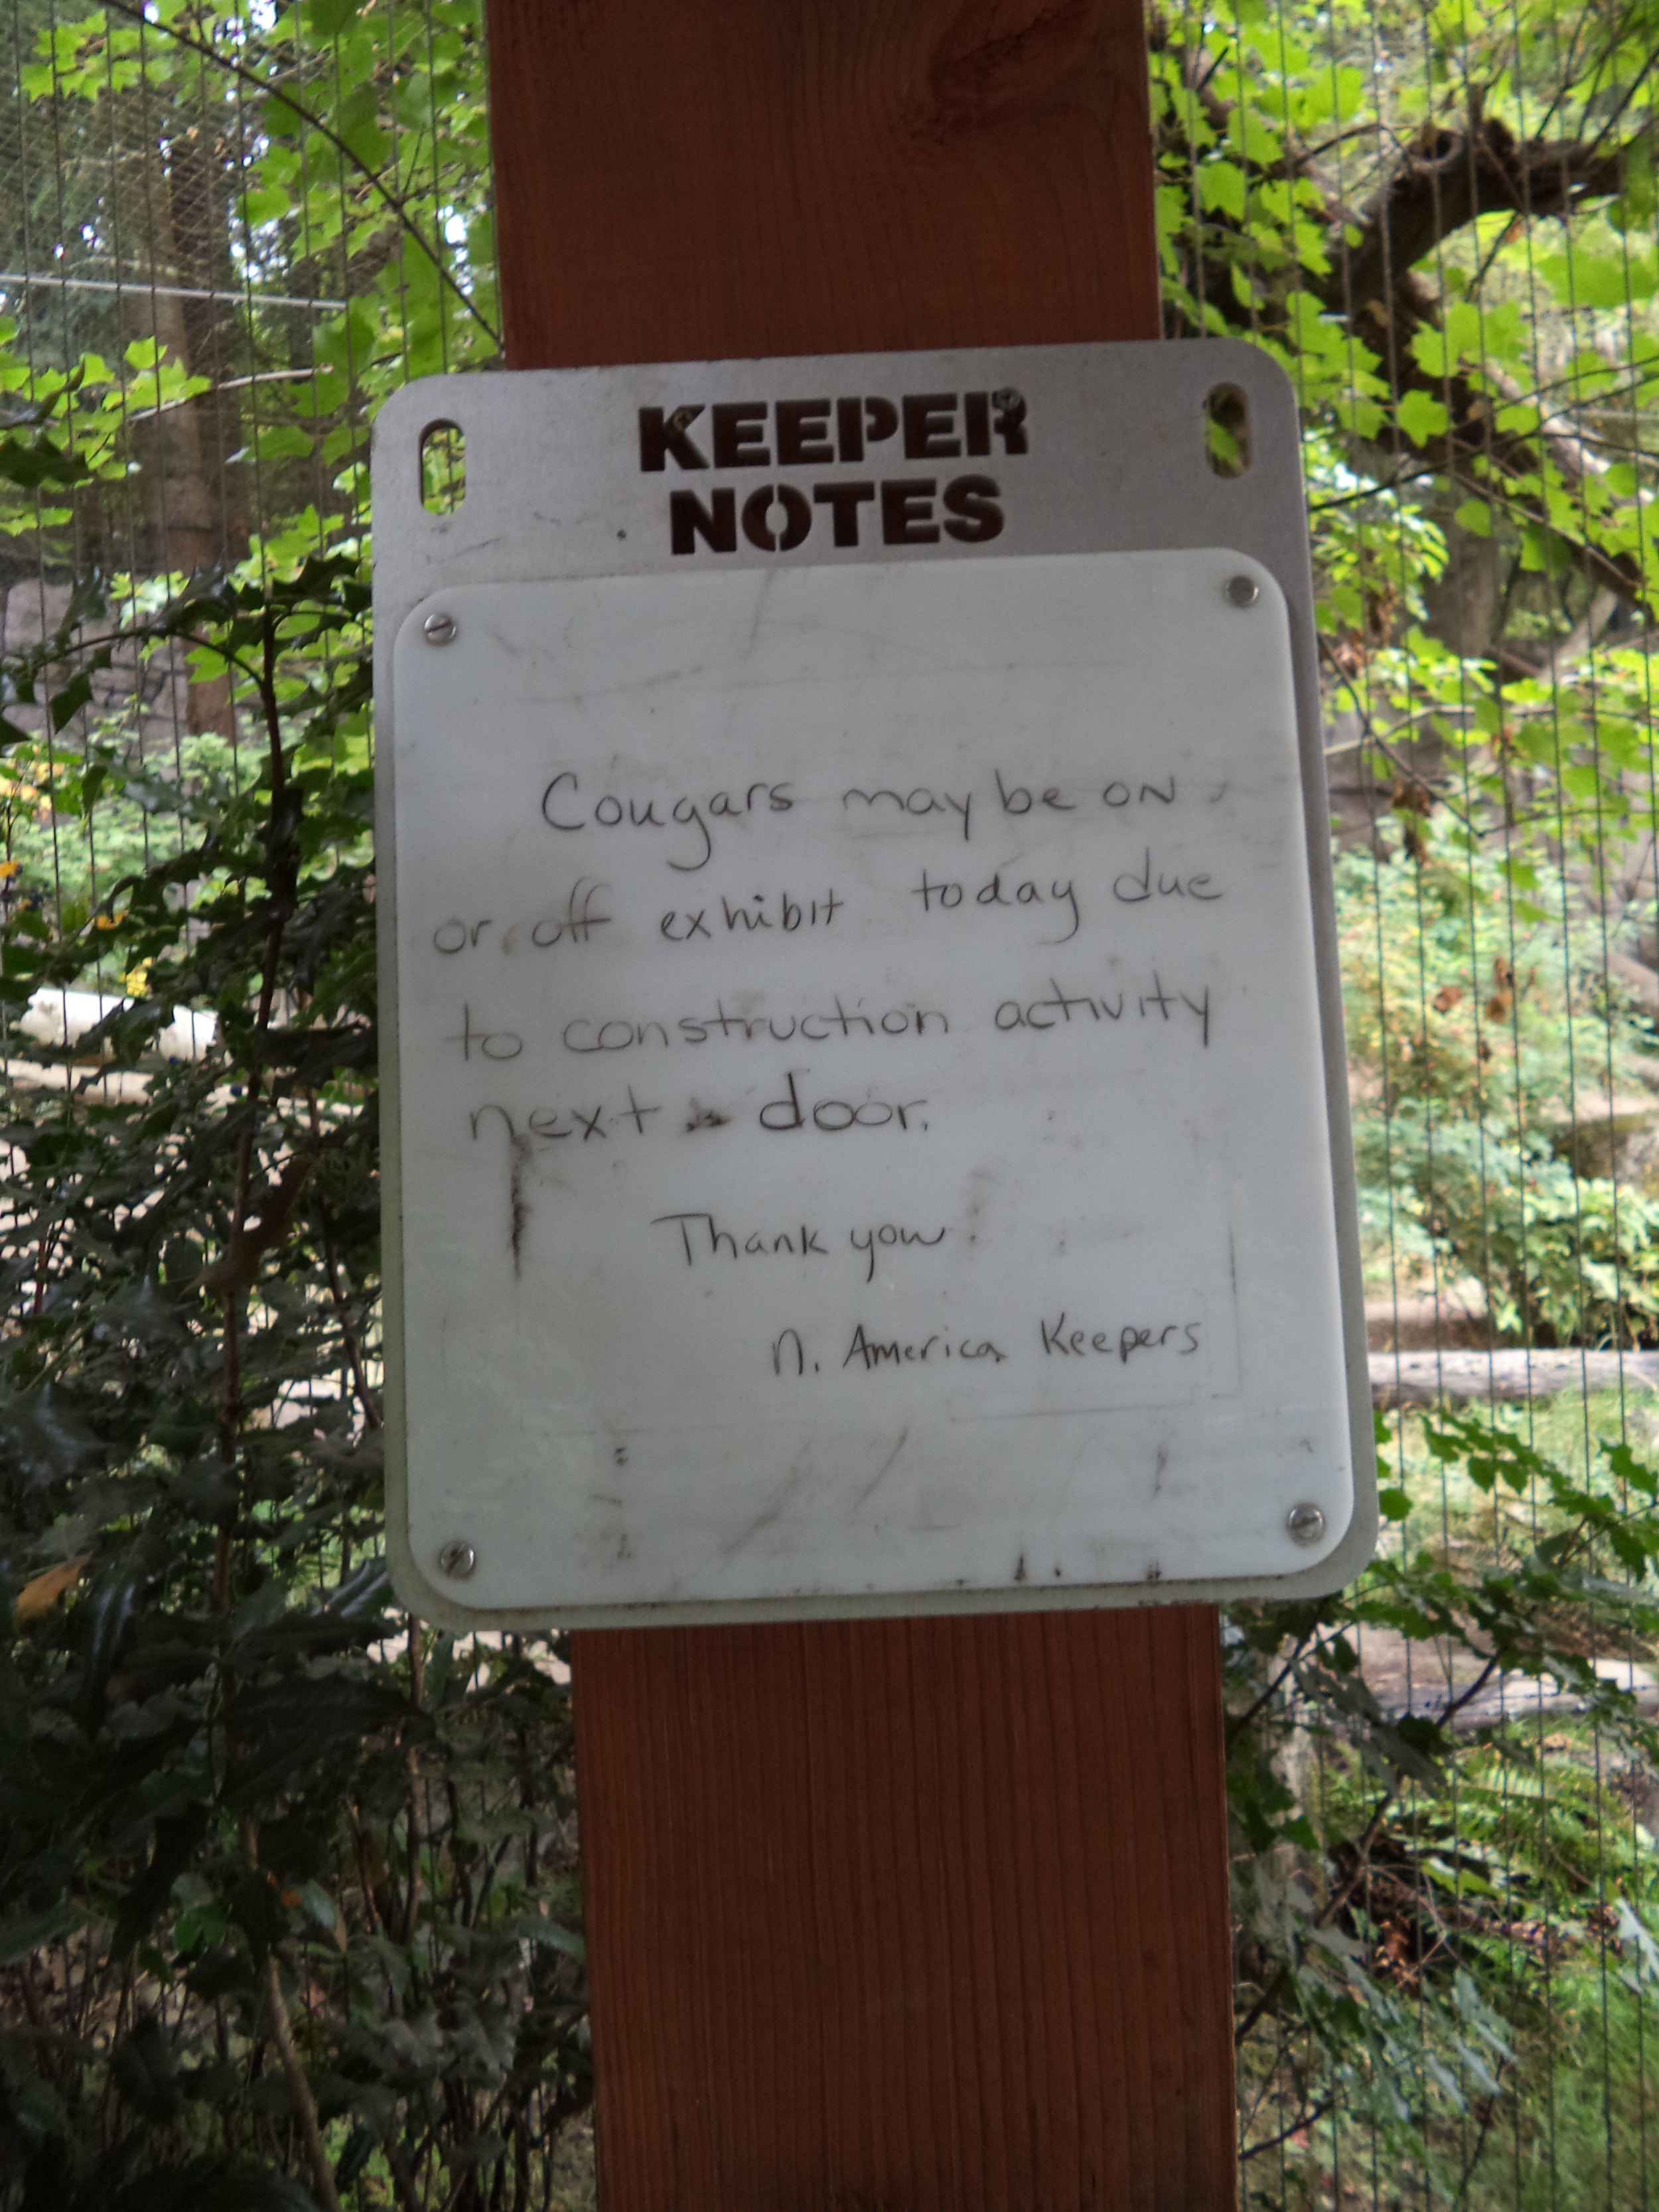 KEEPER
NOTES
Cougars may be on
or off exhibit today due
to construction activity
next door.
Thank you!
N. America Keepers